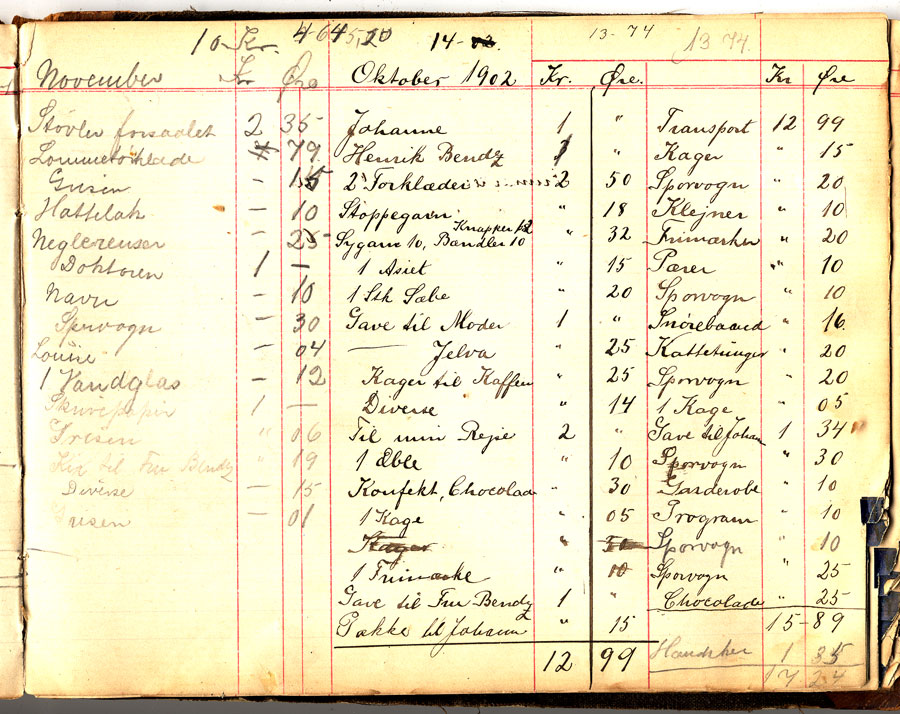 10 Kr.
14-
13-74
13 74.
November Kr Øre
Støvler forsaalet 2 35
Lommetørklæde 79
Grisen - 15
Hattelak - 10
Neglerenser - 25
Doktoren 1 -
Navn - 10
Sporvogn - 30
Louise - 04
1 Vandglas - 12
Skrivepapir 1 -
Grisen " 06
til Fru Bendz " 19
Diverse - 15
Grisen - 01
Oktober 1902 Kr. Øre.
Johanne 1 "
Henrik Bendz 1 "
2 Torklæder 2 50
Stoppegarn " 18
Knapper 12
Sygarn 10, Bændler 10 " 32
1 Asiet " 15
1 Stk Sæbe " 20
Gave til Moder 1 "
— Jelva " 25
Kager til Kaffen " 25
Diverse " 14
Til min Rejse 2 "
1 Æble " 10
Konfekt, Chocolade " 30
1 Kage " 05
Kager " 10
1 Frimærke " 10
Gave til Fru Bendz 1 "
Pakke til Johann " 15
12 99
Kr Øre
Transport 12 99
Kager " 15
Sporvogn " 20
Klejner " 10
Frimærker " 20
Pærer " 10
Sporvogn " 10
Snørebaand " 16
Kattetunger " 20
Sporvogn " 20
1 Kage " 05
Gave til Johan 1 34
Sporvogn " 30
Garderobe " 10
Program " 10
Sporvogn " 10
Sporvogn " 25
Chocolade " 25
15-89
Handsker 1 35
17 24